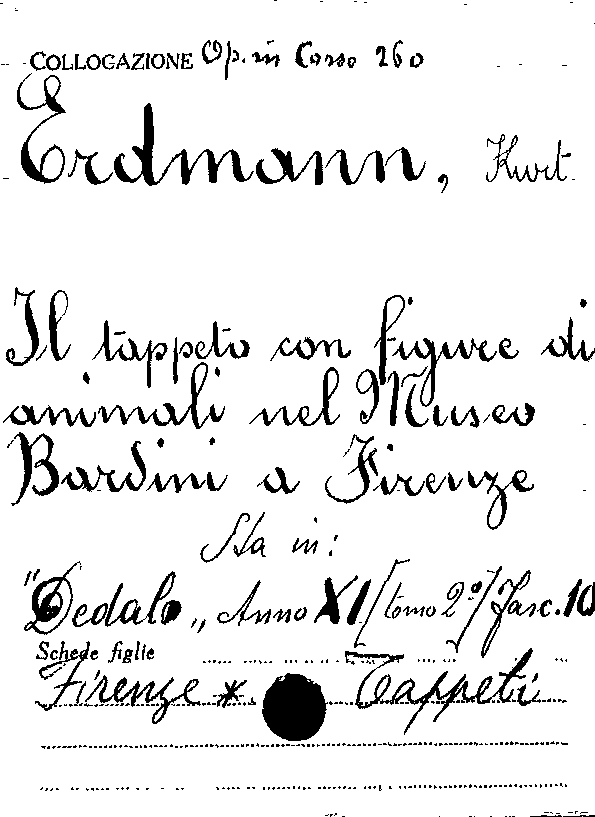 COLLOGAZIONE Op. in Corso 260
Erdmann, Kurt
Il tappeto con figure di
animali nel Museo
Bardini a Firenze
Sta in:
"Dedalo„ Anno XI/[tomo 2º]/Fasc. 10
Schede figlie
Firenze *. Tappeti